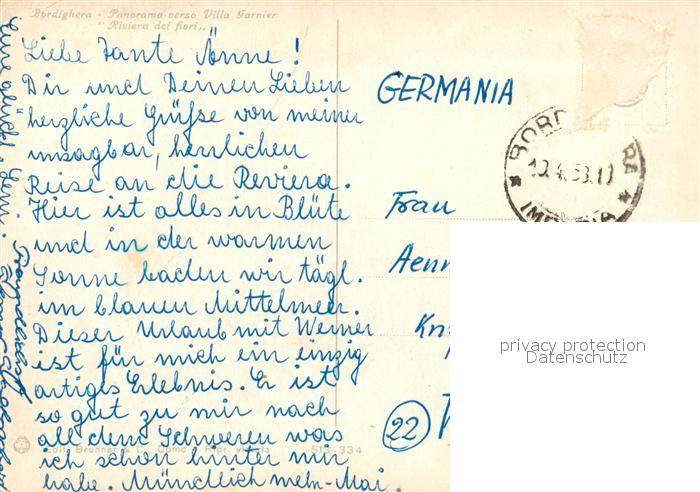 Bordighera - Panorama verso Villa Garnier
"Riviera dei fiori"
Liebe Tante Änne!
Dir und Deinen Lieben
herzliche Grüße von meiner
unsagbar, herrlichen
Reise an die Reviera.
Hier ist alles in Blüte
und in der warmen
Sonne baden wir tägl.
im blauen Mittelmeer.
Dieser Urlaub mit Werner
ist für mich ein einzig
artiges Erlebnis. Er ist
so gut zu mir nach
all dem Schweren was
ich schon hinter mir
habe. Mündlich mehr - Mai.
Edit. Brunner & C. Como - Ripr. vietata
513-334
GERMANIA
BORD RA
10.4.53.11
IMP IA
Frau
Aenn
Kn
22
privacy protection
Datenschutz